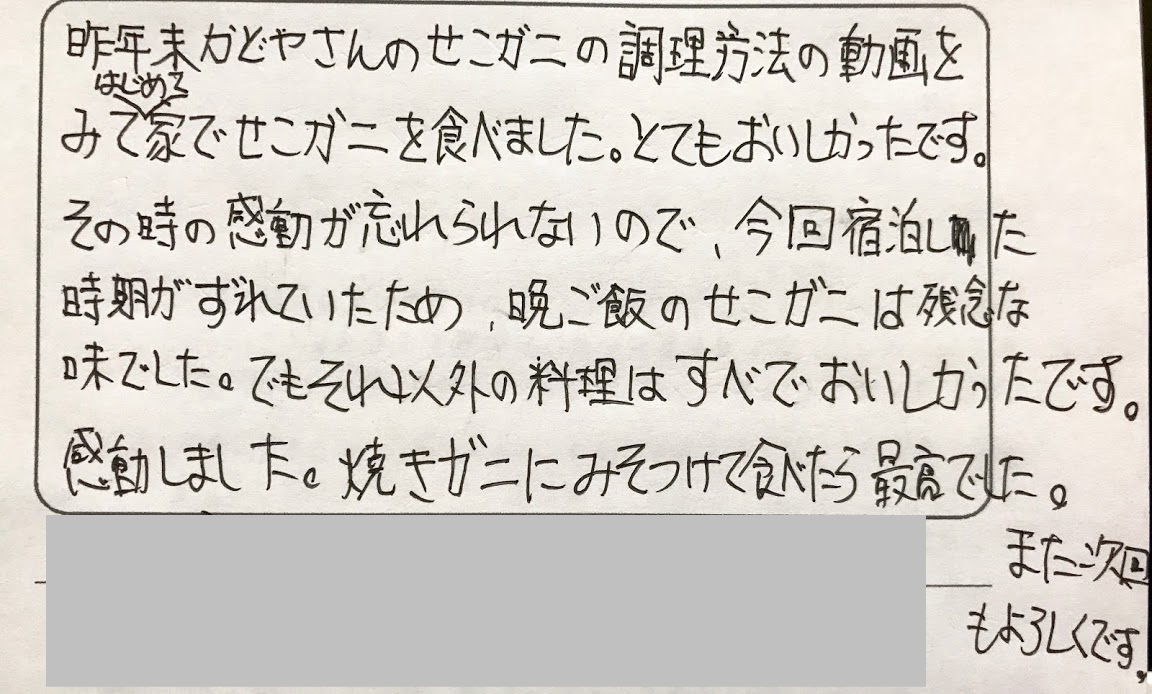 昨年末かどやさんのせこガニの調理方法の動画を
はじめて
みて家でせこガニを食べました。とてもおいしかったです。
その時の感動が忘れられないので、今回宿泊した
時期がずれていたため、晩ご飯のせこガニは残念な
味でした。でもそれ以外の料理はすべでおいしかったです。
感動しました。焼きガニにみそつけて食べたら最高でした。
また次回
もよろしくです。